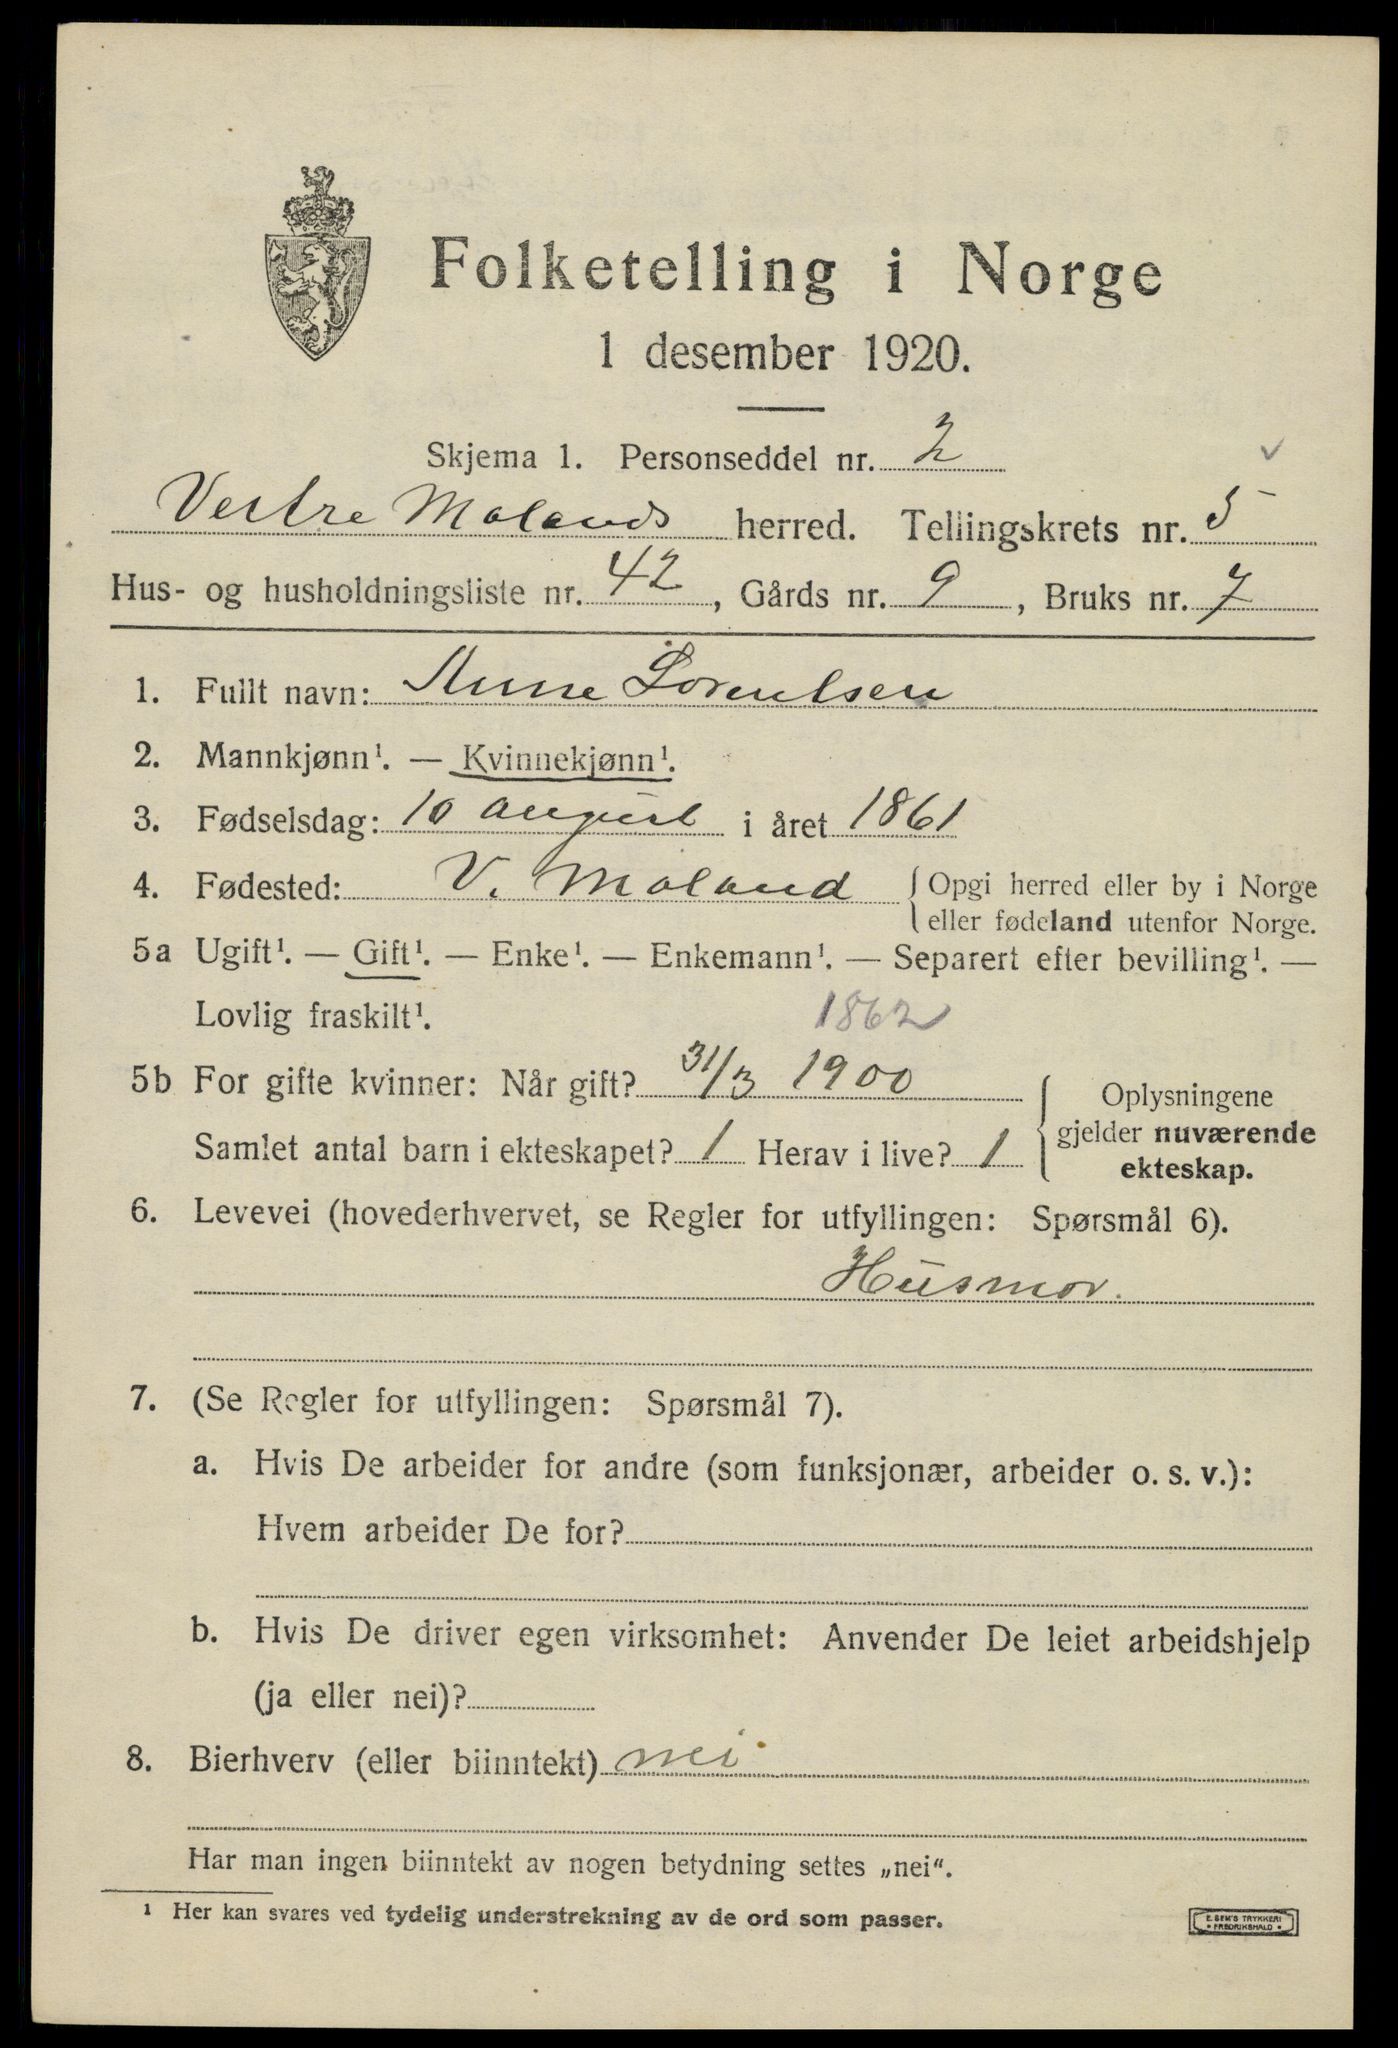 Folketelling i Norge
1 desember 1920.
Skjema 1. Personseddel nr. 2
Vestre Molands herred. Tellingskrets nr. 5
Hus- og husholdningsliste nr. 42, Gårds nr. 9, Bruks nr. 7
1. Fullt navn: Anne Lorentsen
2. Mannkjønn¹. — Kvinnekjønn¹.
3. Fødselsdag: 10 august i året 1861
4. Fødested: V. Moland { Opgi herred eller by i Norge
eller fødeland utenfor Norge.
5a Ugift¹. — Gift¹. — Enke¹. — Enkemann¹. — Separert efter bevilling¹. —
Lovlig fraskilt¹. 1862
5b For gifte kvinner: Når gift? 31/3 1900 { Oplysningene
gjelder nuværende
ekteskap.
Samlet antal barn i ekteskapet? 1 Herav i live? 1
6. Levevei (hovederhvervet, se Regler for utfyllingen: Spørsmål 6).
Husmor.
7. (Se Regler for utfyllingen: Spørsmål 7).
a. Hvis De arbeider for andre (som funksjonær, arbeider o. s. v.):
Hvem arbeider De for?
b. Hvis De driver egen virksomhet: Anvender De leiet arbeidshjelp
(ja eller nei)?
8. Bierhverv (eller biinntekt) nei
Har man ingen biinntekt av nogen betydning settes „nei“.
¹ Her kan svares ved tydelig understrekning av de ord som passer.
E. SEM'S TRYKKERI
• FREDRIKSHALD •